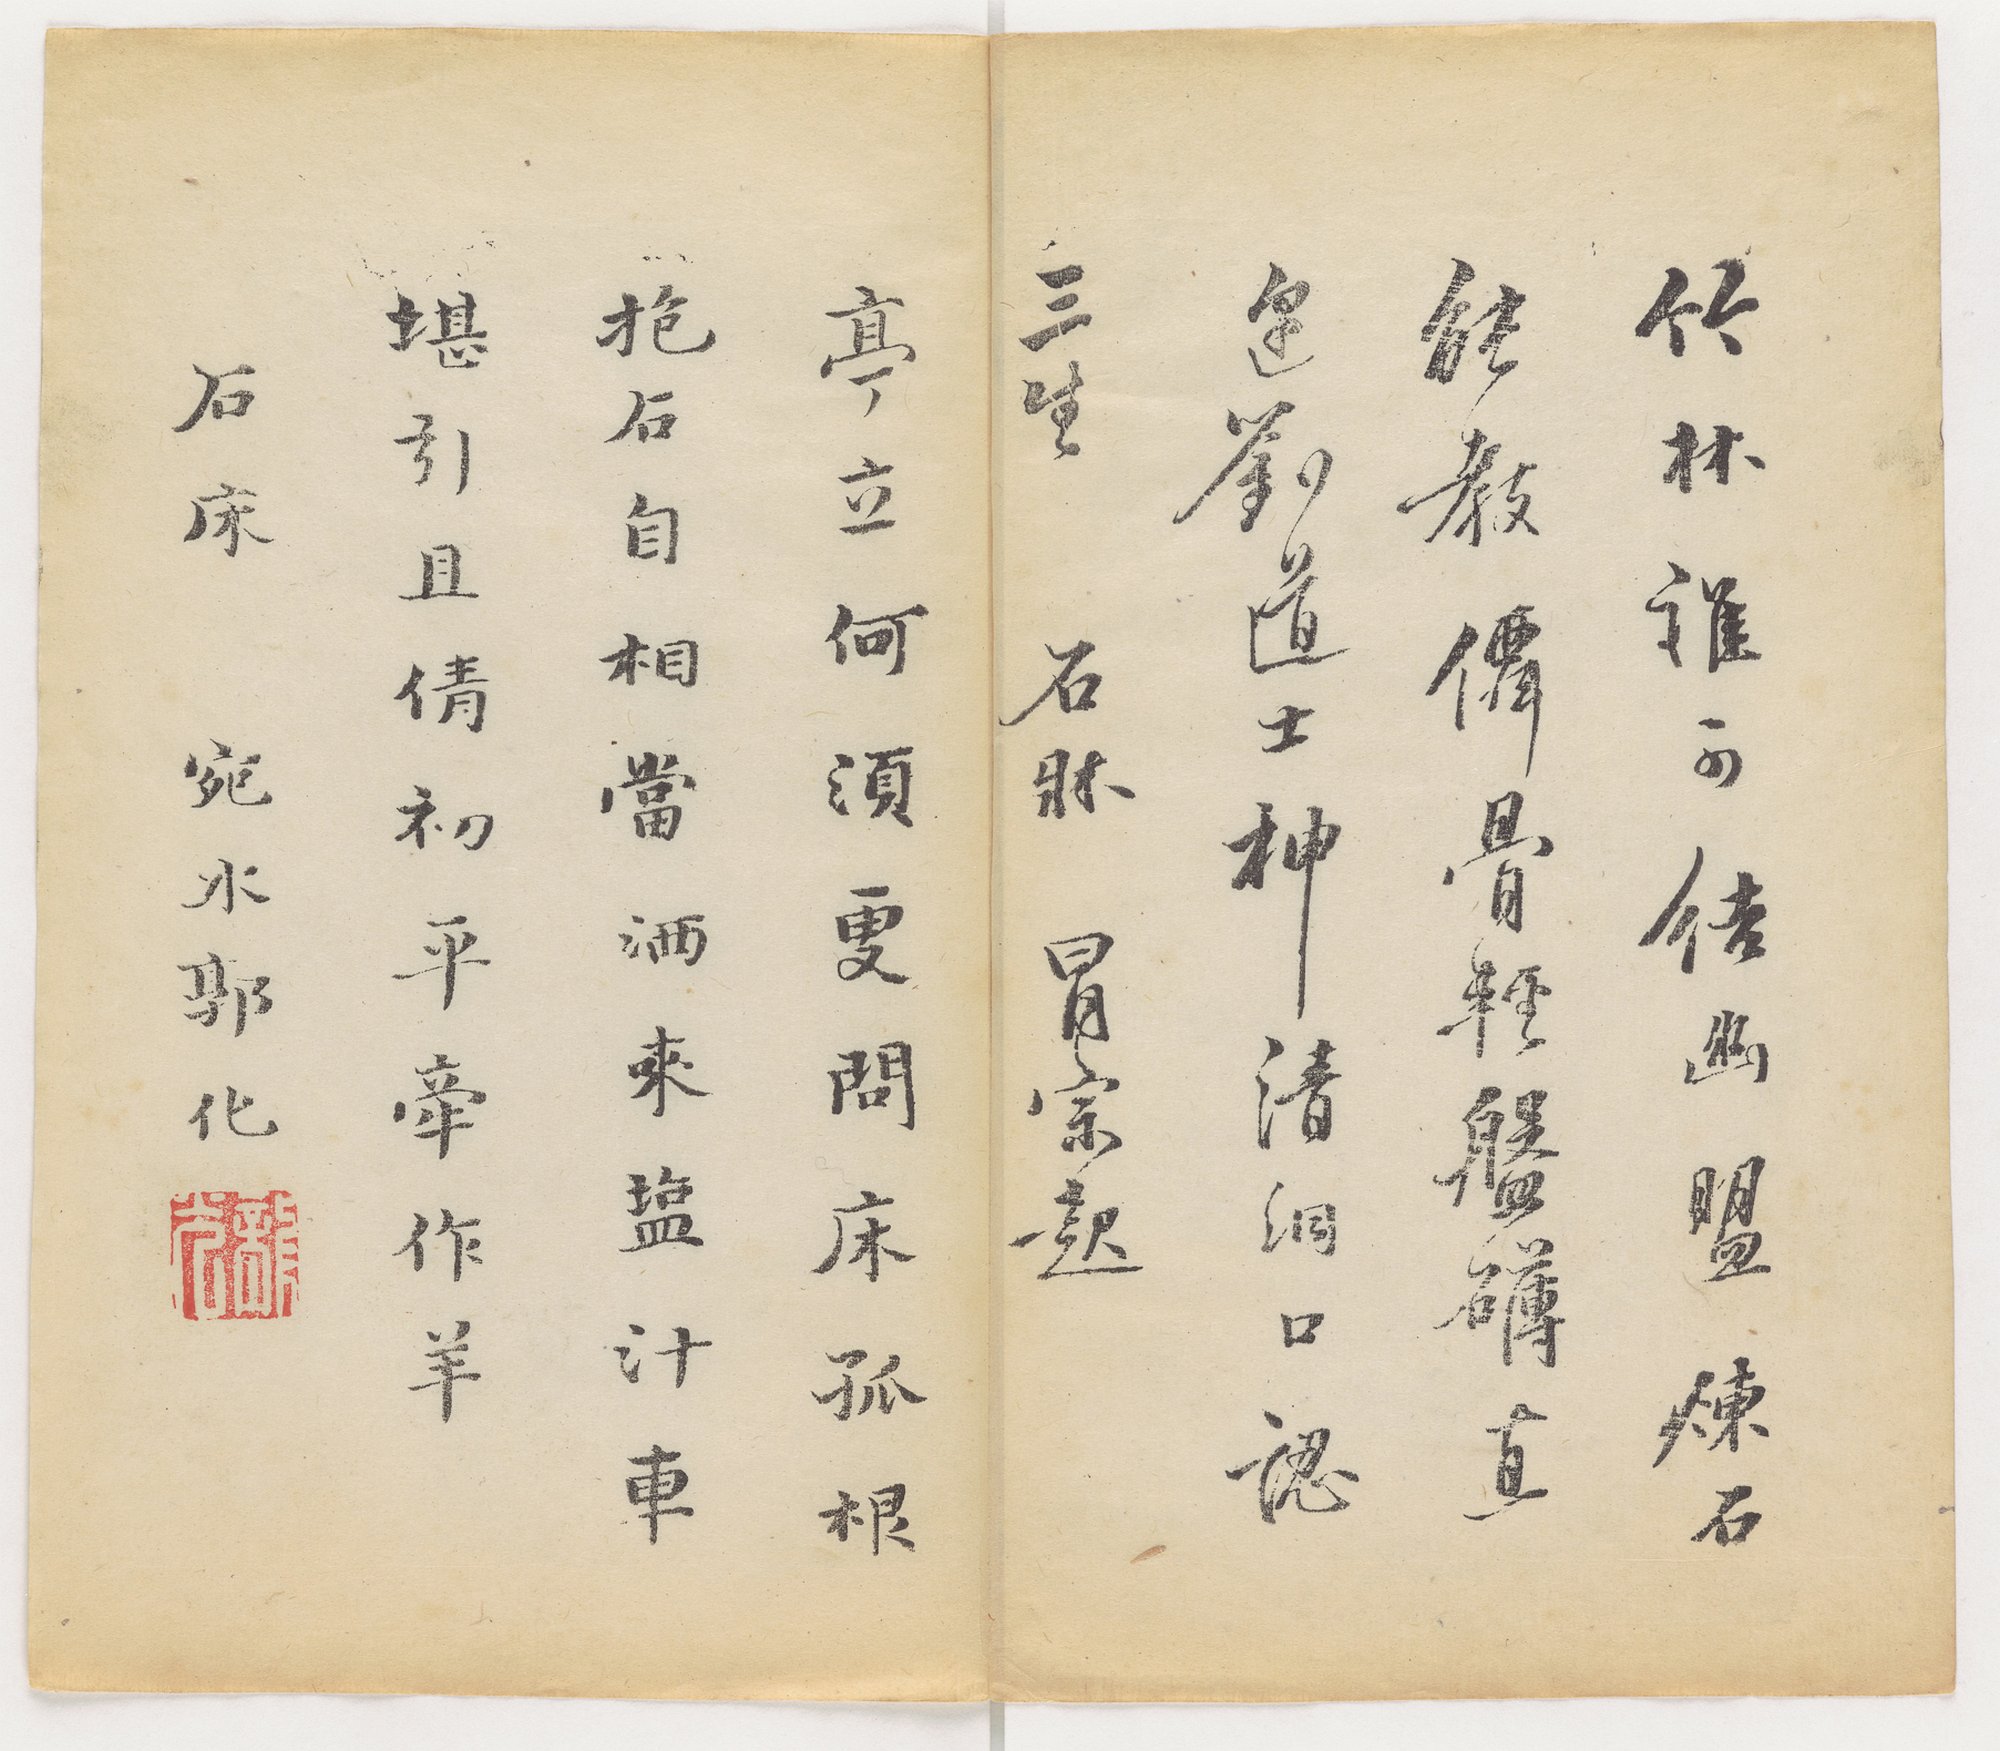 竹林誰可結幽盟煉石
能教僊骨輕盤礴直
邀劉道士神清洞口認
三生　石牀　冒宗起
亭立何須更問床孤根
抱石自相當洒來盐汁車
堪引且倩初平牽作羊
石床　宛水郭化